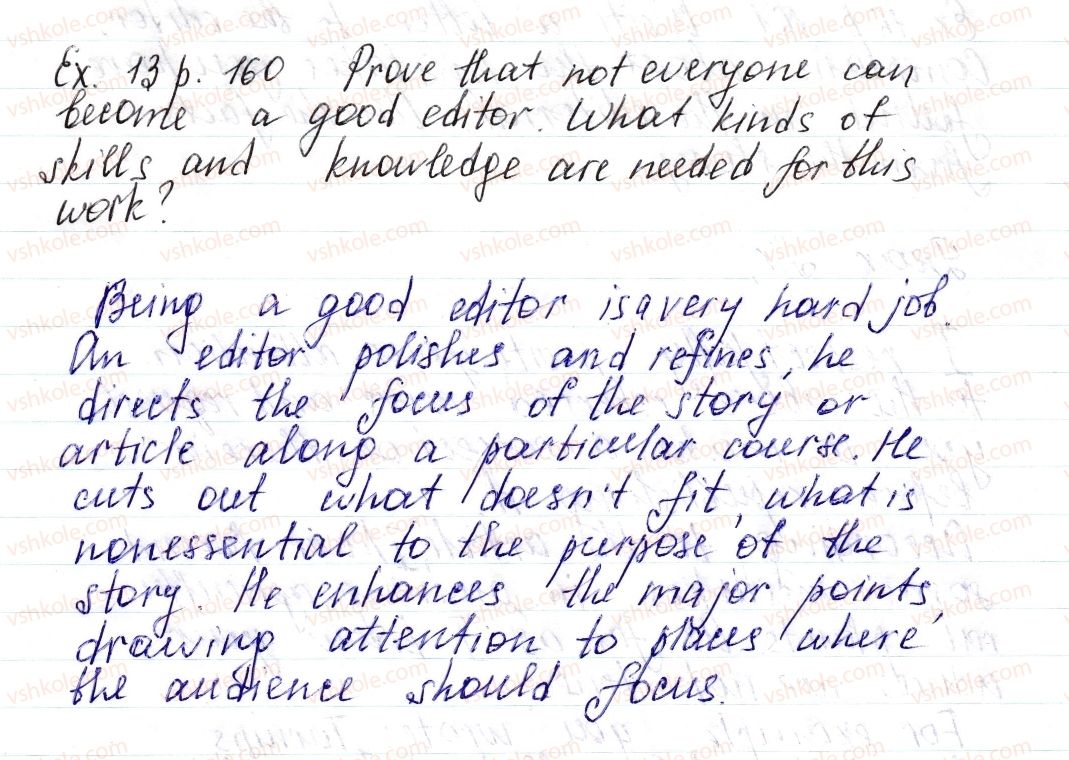 Ex. 13 p. 160 Prove that not everyone can
become a good editor. What kinds of
skills and knowledge are needed for this
work?
Being a good editor is a very hard job.
An editor polishes and refines, he
directs the focus of the story or
article along a particular course. He
cuts out what doesn't fit, what is
nonessential to the purpose of the
story. He enhances the major points,
drawing attention to places where
the audience should focus.